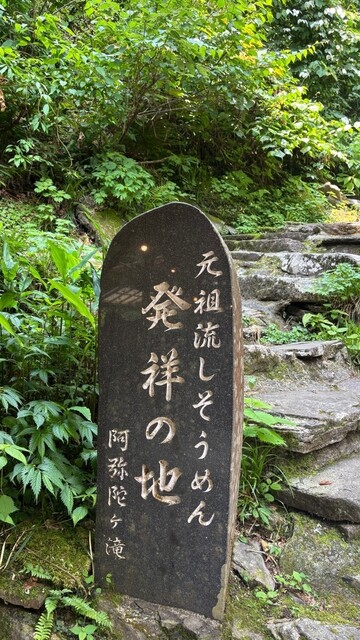 元祖流しそうめん
発祥の地
阿弥陀ヶ滝